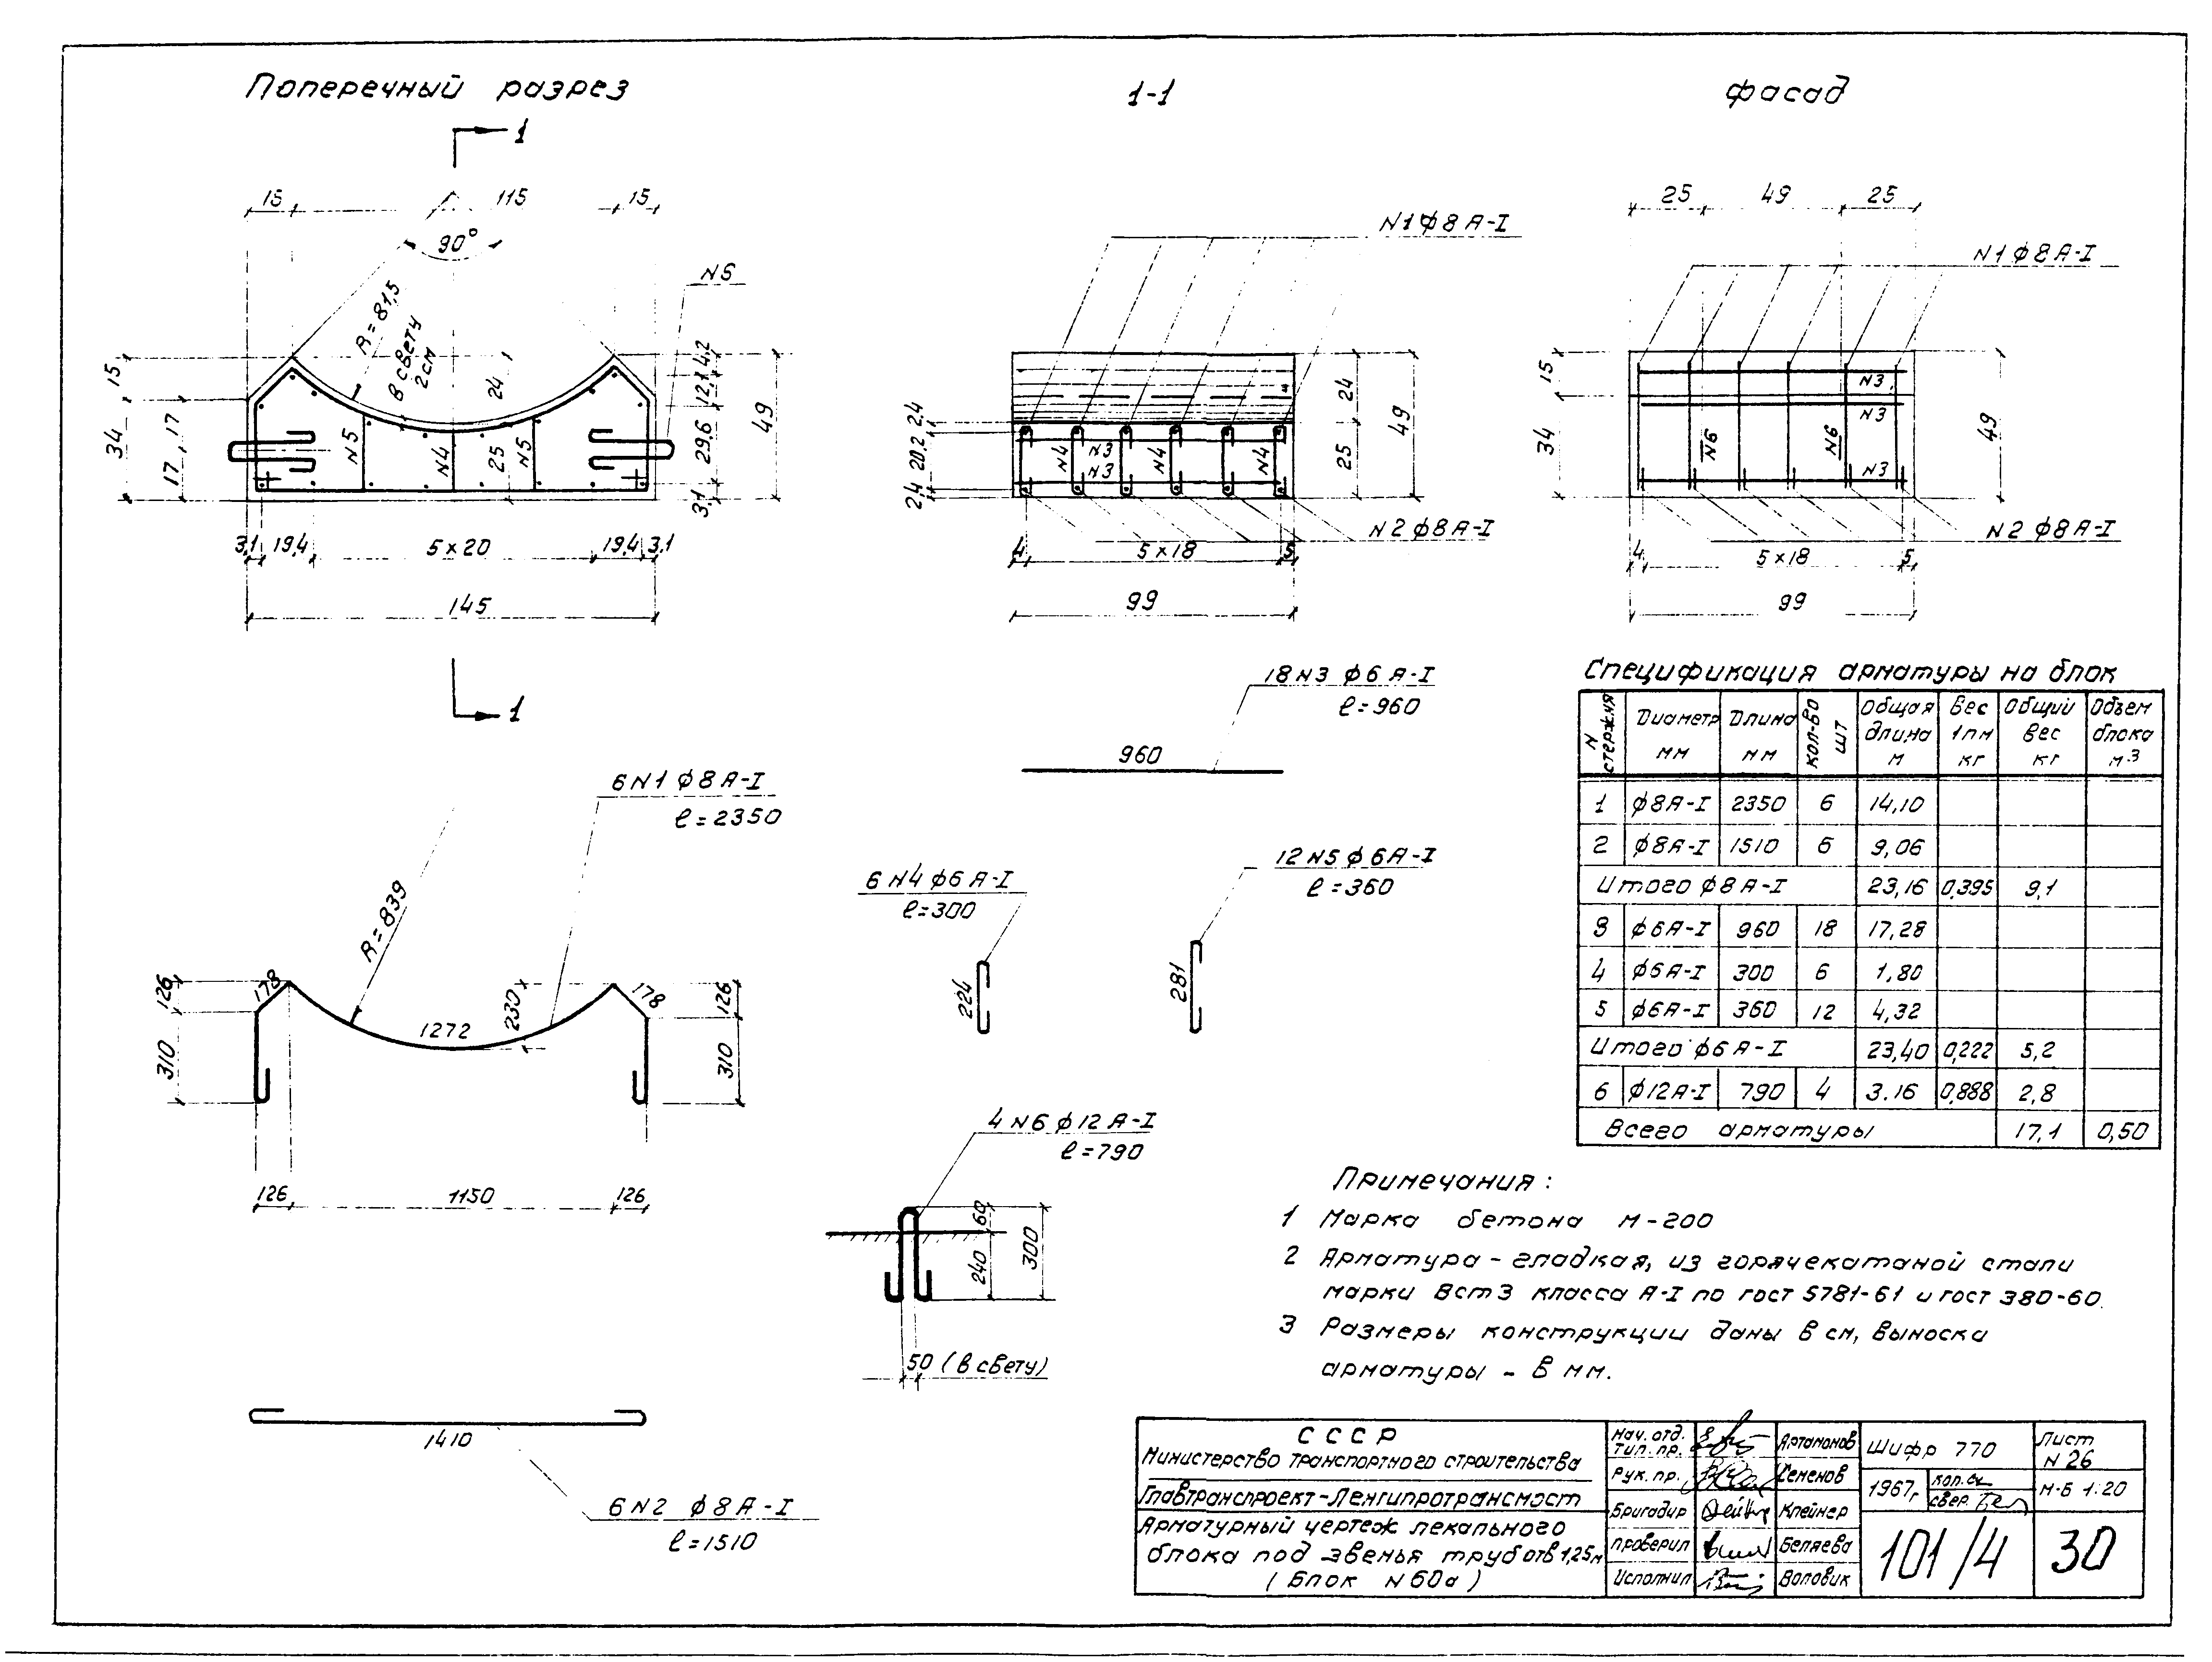 Поперечный разрез
1
15 115 15
90°
N6
R=81,5
в свету
2см
24
15
34
17
17
4,2
12,1
29,6
3,1
49
N5 N4 25 N5
3,1 19,4 5×20 19,4 3,1
145
1
1-1
N1 ф8 А-I
2,4
20,2
2,4
N4 N3 N4 N4
N3
24
25
49
N2 ф8 А-I
4 5×18 5
99
фасад
25 49 25
N1 ф8 А-I
15
34
N3
N3
N6 N6
N3
49
N2 ф8 А-I
4 5×18 5
99
18 N3 ф6 А-I
ℓ=960
960
6 N1 ф8 А-I
ℓ=2350
R=839
126
178
310
1272
230
178
126
310
126 1150 126
6 N4 ф6 А-I
ℓ=300
224
12 N5 ф6 А-I
ℓ=360
281
4 N6 ф12 А-I
ℓ=790
60
240
300
50 (в свету)
1410
6 N2 ф8 А-I
ℓ=1510
Спецификация арматуры на блок
N стержня Диаметр мм Длина мм кол-во шт Общая длина м Вес 1пм кг Общий вес кг Объем блока м3
1 ф8А-I 2350 6 14,10
2 ф8А-I 1510 6 9,06
Итого ф8 А-I 23,16 0,395 9,1
3 ф6А-I 960 18 17,28
4 ф6А-I 300 6 1,80
5 ф6А-I 360 12 4,32
Итого ф6 А-I 23,40 0,222 5,2
6 ф12А-I 790 4 3.16 0,888 2,8
Всего арматуры 17,1 0,50
Примечания:
1 Марка бетона М-200
2 Арматура - гладкая, из горячекатаной стали
марки Вст3 класса А-I по гост 5781-61 и гост 380-60.
3 Размеры конструкции даны в см, выноска
арматуры - в мм.
СССР
Министерство транспортного строительства
Главтранспроект-Ленгипротрансмост
Арматурный чертеж лекального
блока под звенья труб отв 1,25м
(Блок N 60а)
Нач. отд. тип. пр. Артамонов
Рук. пр. Семенов
Бригадир Клейнер
Проверил Беляева
Исполнил Воловик
Шифр 770
Лист N 26
1967г. коп.
свер.
М-Б 1:20
101/4
30